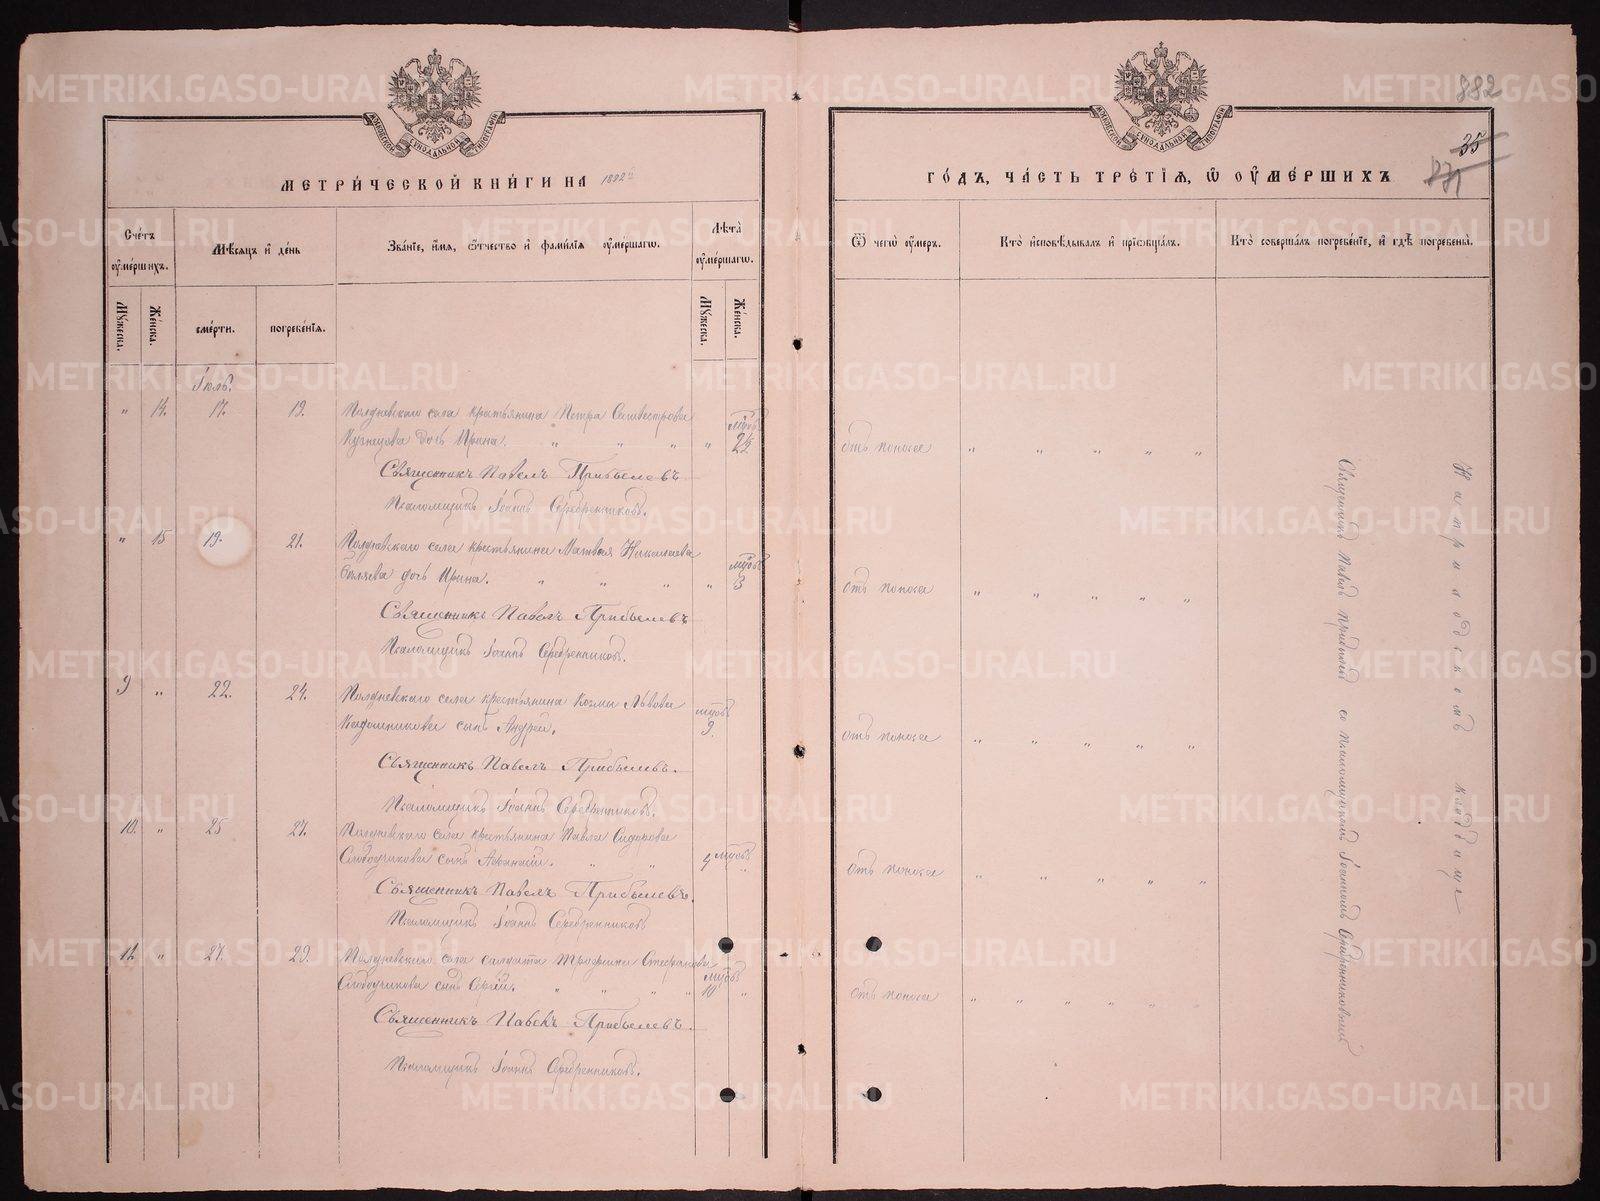 882
35
871
МЕТРИЧЕСКОЙ КНИГИ НА 1892й
ГОДЪ, ЧАСТЬ ТРЕТІЯ, Ѿ ОУМЕРШИХЪ
Счетъ оумершихъ.
Мѣсяцъ и день
Званіе, имя, отчество и фамилія оумершагѡ.
Лѣта оумершагѡ.
Ѿ чегѡ оумеръ.
Кто исповѣдывалъ и пріѡбщалъ.
Кто совершалъ погребеніе, и гдѣ погребены.
Мужеска.
Женска.
смерти.
погребенія.
Мужеска.
Женска.
Іюль.
„ 14. 17. 19. Полдневскаго села крестьянина Петра Селивестрова мцовъ
Кузнецова дочь Ирина. „ „ „ „ отъ поноса „ „ „ „ „
Священникъ Павелъ Прибылевъ
Псаломщикъ Іоаннъ Серебренниковъ.
„ 15 19. 21. Полдневскаго села крестьянина Матвея Николаева мцовъ
дочь Ирина. „ „ „ „ 3 отъ поноса „ „ „ „ „
Священникъ Павелъ Прибылевъ
Псаломщикъ Іоаннъ Серебренниковъ.
9 „ 22. 24. Полдневскаго села крестьянина Козмы Львова мцовъ
сынъ Андрей. 9. отъ поноса „ „ „ „ „
Священникъ Павелъ Прибылевъ.
Псаломщикъ Іоаннъ Серебренниковъ.
10. „ 25 27. Полдневскаго села крестьянина Павла Сидорова
Слободчикова сынъ Афанасій. „ „ мцовъ „ отъ поноса „ „ „ „ „
Священникъ Павелъ Прибылевъ.
Псаломщикъ Іоаннъ Серебренниковъ
11. „ 27. 29. Полдневскаго села солдата Трофима Стефанова мцовъ
Слободчикова сынъ Сергій. „ „ „ „ 10 „ отъ поноса „ „ „ „ „
Священникъ Павелъ Прибылевъ.
Псаломщикъ Іоаннъ Серебренниковъ.
Священникъ Павелъ Прибылевъ со псаломщикомъ Іоанномъ Серебренниковымъ
На приходскомъ кладбище
METRIKI.GASO-URAL.RU